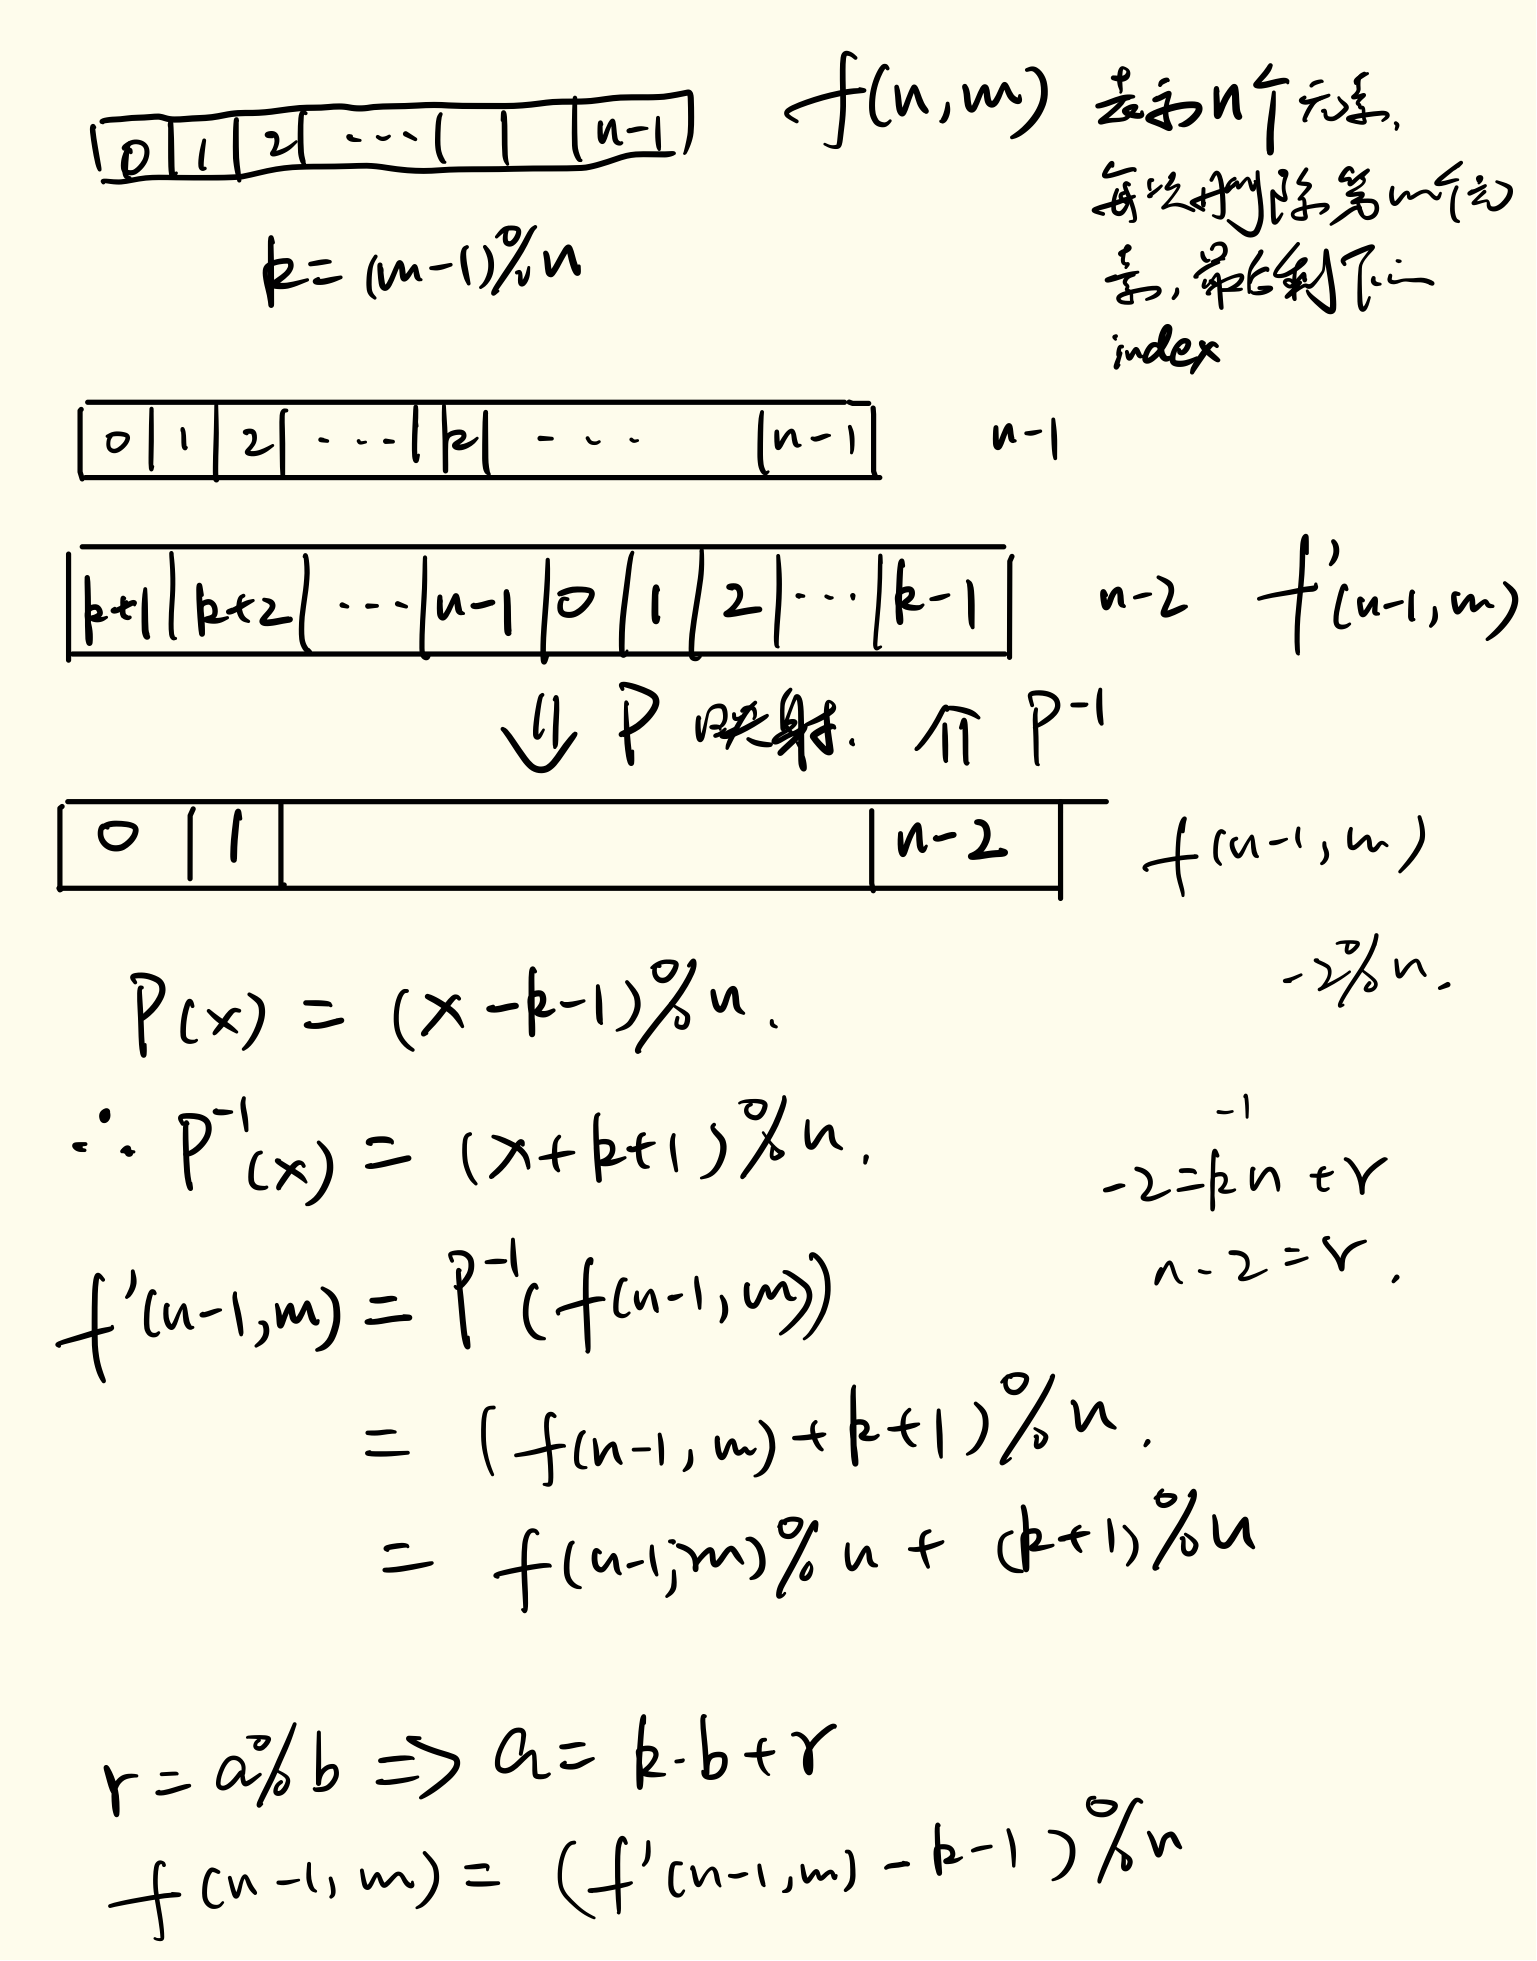 0 1 2 ... n-1
f(n,m) 表示n个元素,
每次删除第m个元
素,最后剩下一
index
k=(m-1)%n
0 1 2 ... k ... n-1 n-1
k+1 k+2 ... n-1 0 1 2 ... k-1 n-2 f'(n-1,m)
⇓ P 映射. ⇑ P⁻¹
0 1 n-2 f(n-1,m)
-2%n.
P(x) = (x-k-1)%n.
∴ P⁻¹(x) = (x+k+1)%n.
-1
-2=kn+r
n-2=r.
f'(n-1,m) = P⁻¹(f(n-1,m))
= (f(n-1,m)+k+1)%n.
= f(n-1,m)%n + (k+1)%n
r=a%b => a=k·b+r
f(n-1,m) = (f'(n-1,m)-k-1)%n